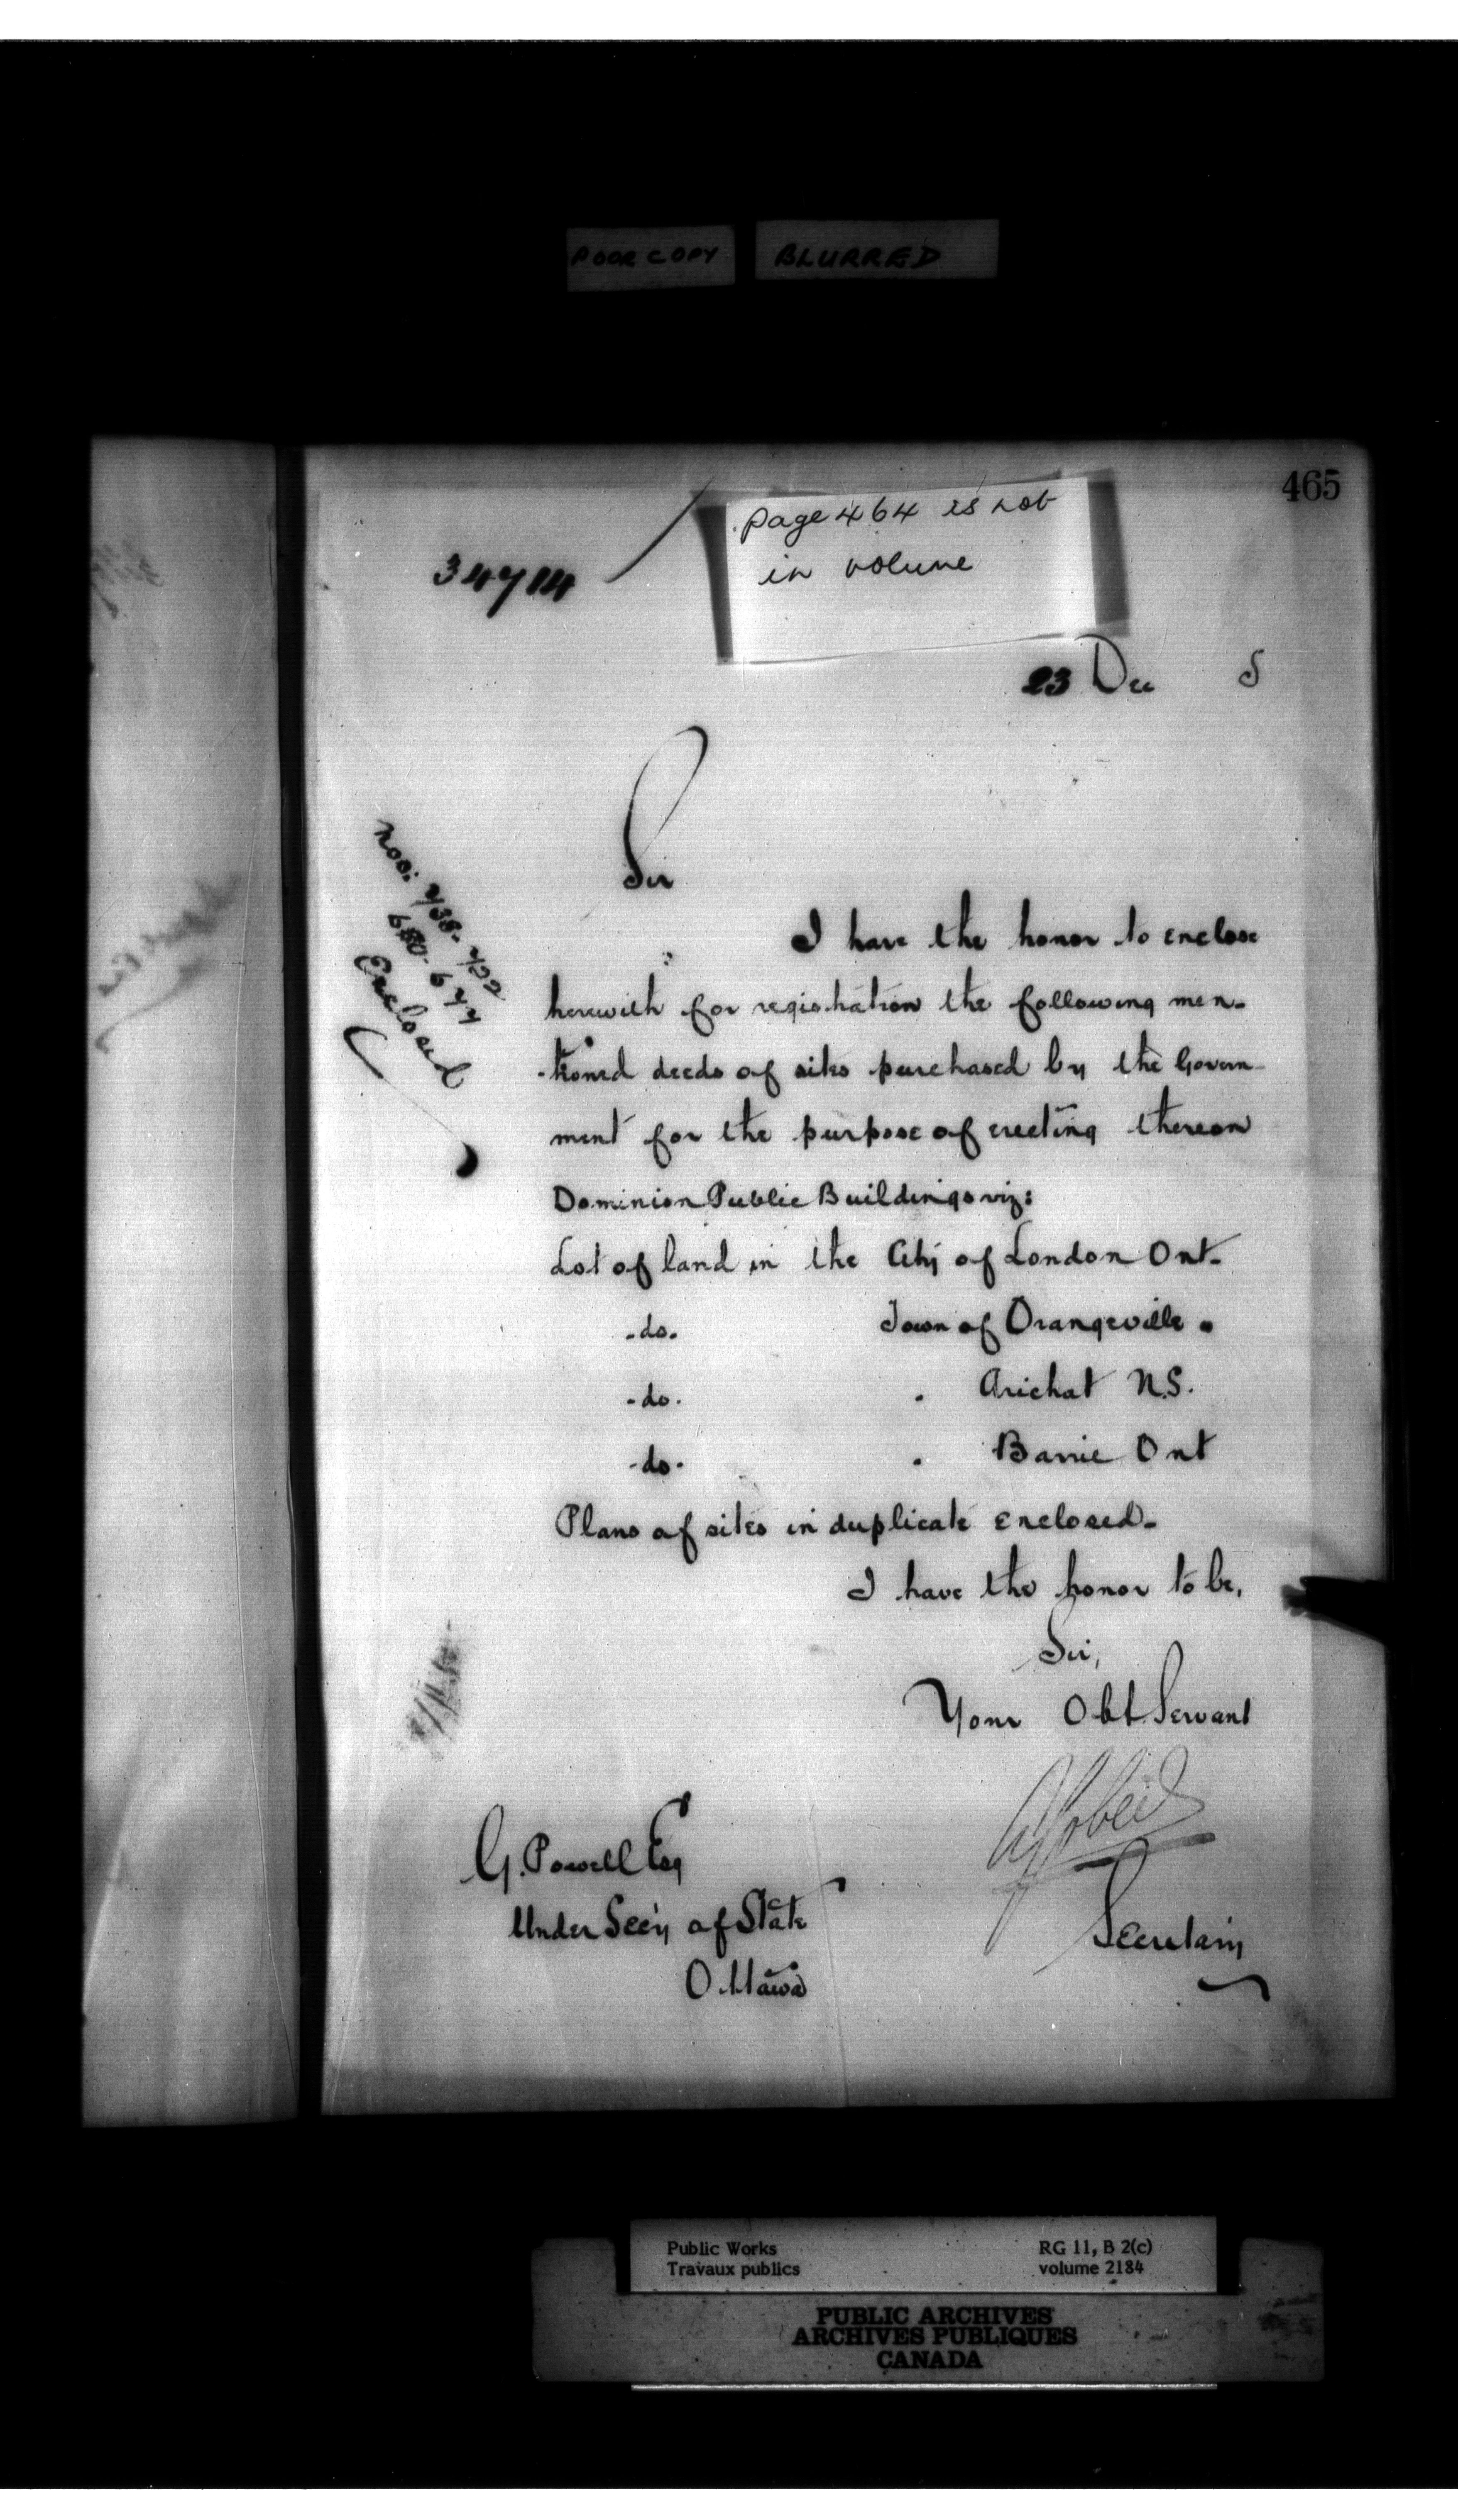 POOR COPY BLURRED
465
page 464 is not
in volume
34714
23 Dec 5
Sir
Nos: 738-722
680-677
Enclosed
I have the honor to enclose
herewith for registration the following men-
-tioned deeds of sites purchased by the Govern-
ment for the purpose of erecting thereon
Dominion Public Buildings viz:
Lot of land in the City of London Ont-
-do- Town of Orangeville "
-do- " Arichat N.S.
-do- " Barrie Ont
Plans of sites in duplicate enclosed-
I have the honor to be,
Sir,
Your Obt. Servant
G. Powell Esq
Under Secy of State
Ottawa
Secretary
Public Works RG 11, B 2(c)
Travaux publics volume 2184
PUBLIC ARCHIVES
ARCHIVES PUBLIQUES
CANADA